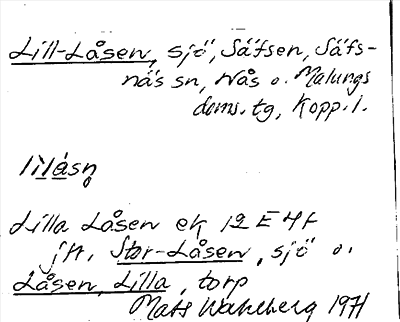 Lill-Låsen, sjö, Säfsen, Säfs-
näs sn, Nås o. Malungs
doms. tg, Kopp. l.
Lilla Låsen ek 12 E 4f
jfr. Stor-Låsen, sjö o.
Låsen, Lilla, torp
Mats Wahlberg 1971